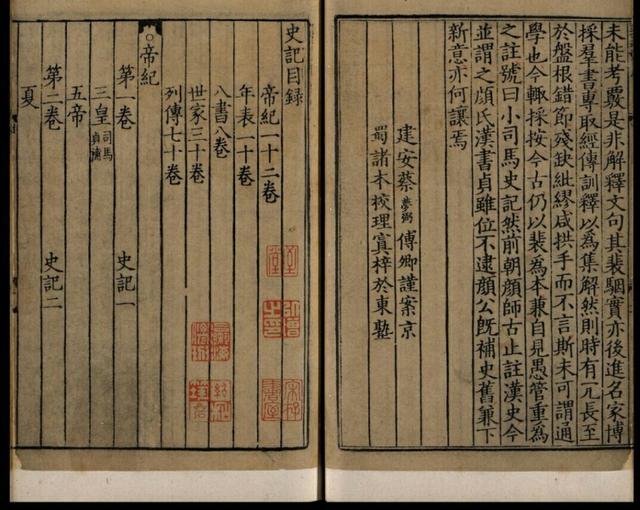 未能考覈是非解釋文句其裴駰實亦後進名家博
採羣書專取經傳訓釋以為集解然則時有冗長至
於盤根錯節殘缺紕繆咸拱手而不言斯未可謂通
學也今輙採按今古仍以裴為本兼自見愚管重為
之註號曰小司馬史記然前朝顔師古止註漢史今
並謂之顔氏漢書貞雖位不逮顔公既補史舊兼下
新意亦何讓焉
建安蔡夢弼傅卿謹案京
蜀諸本校理寘梓於東塾
史記目錄
帝紀一十二卷
年表一十卷
八書八卷
世家三十卷
列傳七十卷
帝紀
第一卷 史記一
三皇 司馬貞補
五帝
第二卷 史記二
夏